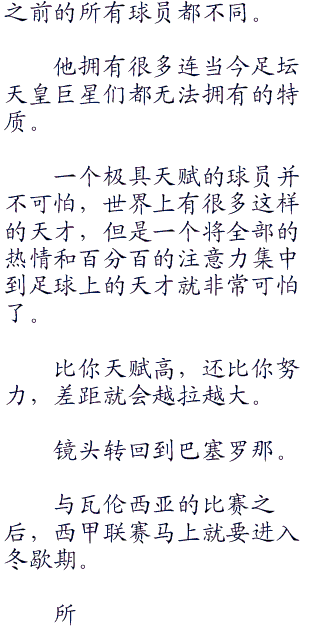 之前的所有球员都不同。
他拥有很多连当今足坛
天皇巨星们都无法拥有的特
质。
一个极具天赋的球员并
不可怕，世界上有很多这样
的天才，但是一个将全部的
热情和百分百的注意力集中
到足球上的天才就非常可怕
了。
比你天赋高，还比你努
力，差距就会越拉越大。
镜头转回到巴塞罗那。
与瓦伦西亚的比赛之
后，西甲联赛马上就要进入
冬歇期。
所